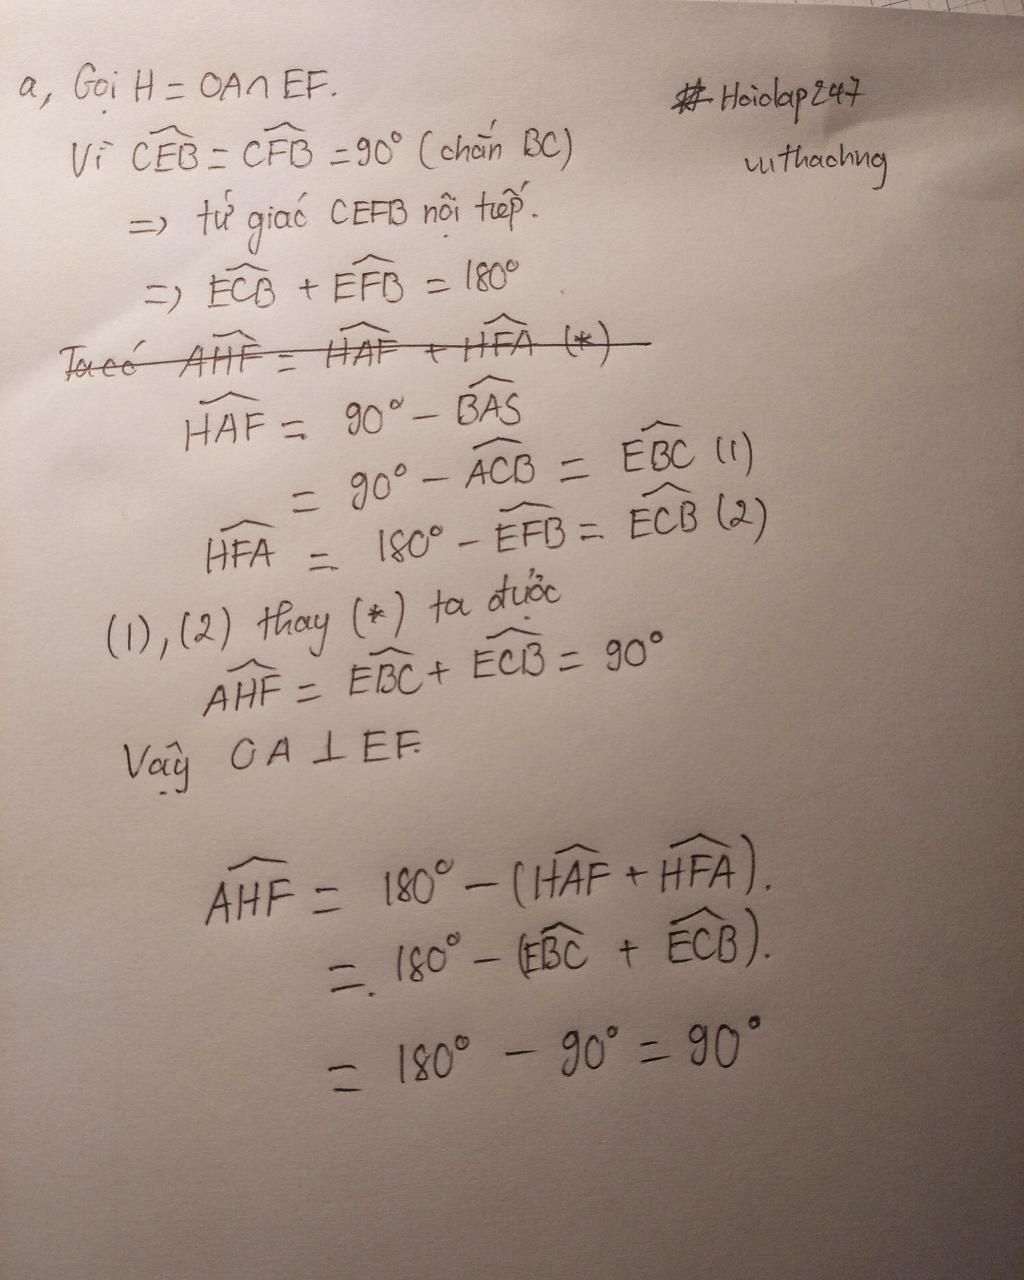 a, Gọi H = OA∩ EF.
# Hoidap247
vuthachng
Vì \widehat{CEB} = \widehat{CFB} = 90° (chắn BC)
=> tứ giác CEFB nội tiếp.
=> \widehat{ECB} + \widehat{EFB} = 180°
Ta có \widehat{AHF} = \widehat{HAF} + \widehat{HFA} (*)
\widehat{HAF} = 90° - \widehat{BAS}
= 90° - \widehat{ACB} = \widehat{EBC} (1)
\widehat{HFA} = 180° - \widehat{EFB} = \widehat{ECB} (2)
(1), (2) thay (*) ta được
\widehat{AHF} = \widehat{EBC} + \widehat{ECB} = 90°
Vậy OA ⊥ EF.
\widehat{AHF} = 180° - (\widehat{HAF} + \widehat{HFA}).
= 180° - (\widehat{EBC} + \widehat{ECB}).
= 180° - 90° = 90°